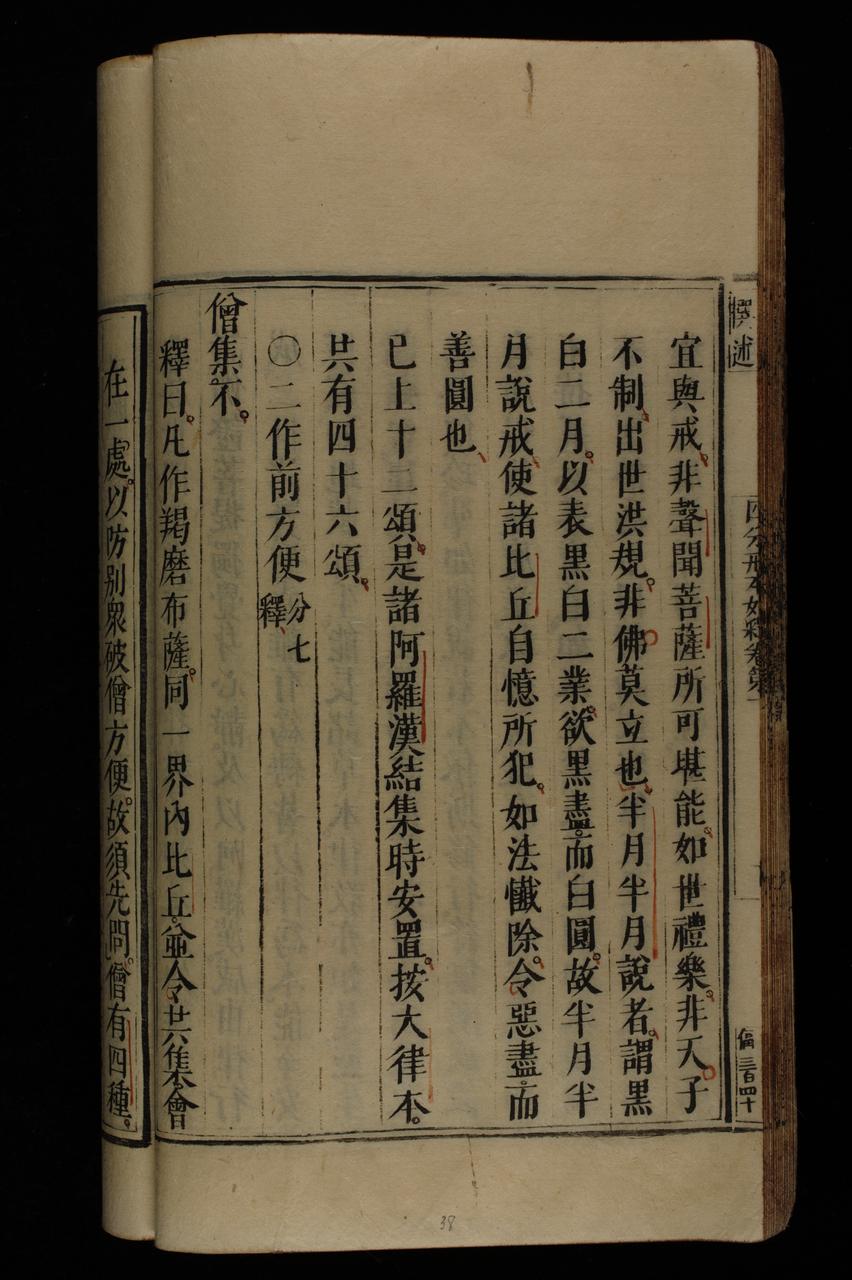 撰述
四分戒本如釋卷第一
偪三百四十
宜與戒。非聲聞菩薩所可堪能。如世禮樂。非天子
不制。出世洪規。非佛莫立也。半月半月說者。謂黑
白二月。以表黑白二業。欲黑盡而白圓。故半月半
月說戒。使諸比丘自憶所犯。如法懺除。令惡盡而
善圓也。
已上十二頌。是諸阿羅漢結集時安置。按大律本。
共有四十六頌。
○二作前方便分七釋
僧集不。
釋曰。凡作羯磨布薩。同一界內比丘。並令共集會
在一處。以防別眾破僧方便。故須先問。僧有四種。
38